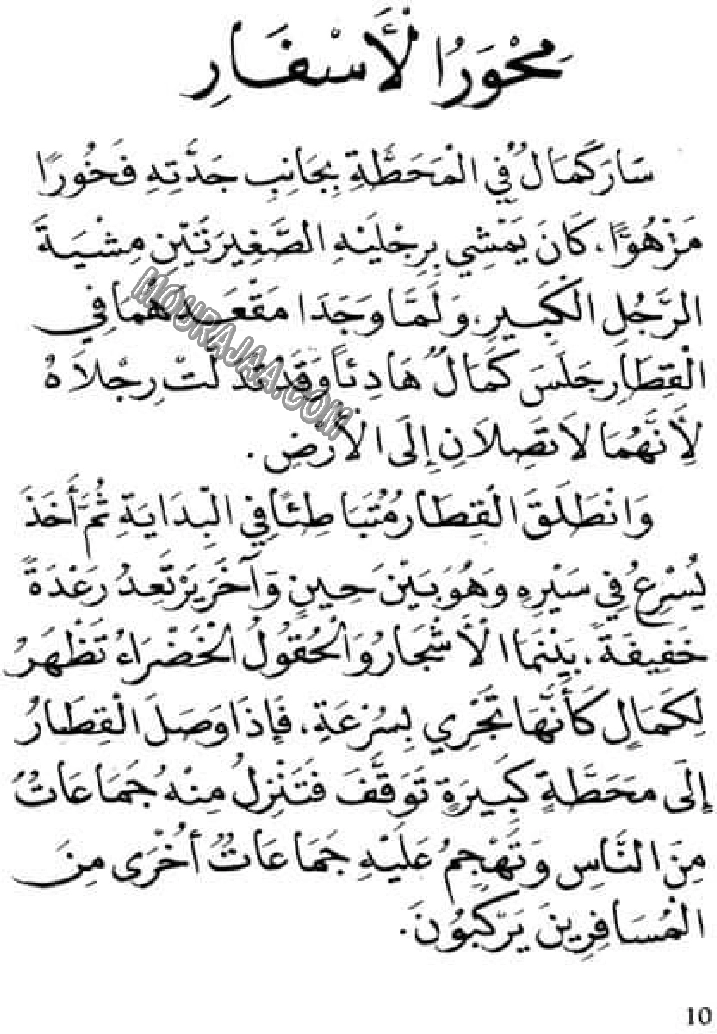 مِحْوَرُ الْأَسْفَارِ
سَارَ كَمَالٌ فِي الْمَحَطَّةِ بِجَانِبِ جَدَّتِهِ فَخُورًا
مَزْهُوًّا، كَانَ يَمْشِي بِرِجْلَيْهِ الصَّغِيرَتَيْنِ مِشْيَةَ
الرَّجُلِ الْكَبِيرِ، وَلَمَّا وَجَدَا مَقْعَدَهُمَا فِي
الْقِطَارِ جَلَسَ كَمَالٌ هَادِئاً وَقَدْ تَدَلَّتْ رِجْلَاهُ
لِأَنَّهُمَا لَا تَصِلَانِ إِلَى الْأَرْضِ.
وَانْطَلَقَ الْقِطَارُ مُتَبَاطِئًا فِي الْبِدَايَةِ ثُمَّ أَخَذَ
يُسْرِعُ فِي سَيْرِهِ وَهُوَ بَيْنَ حِينٍ وَآخَرَ يَرْتَعِدُ رَعْدَةً
خَفِيفَةً، بَيْنَمَا الْأَشْجَارُ وَالْحُقُولُ الْخَضْرَاءُ تَظْهَرُ
لِكَمَالٍ كَأَنَّهَا تَجْرِي بِسُرْعَةٍ، فَإِذَا وَصَلَ الْقِطَارُ
إِلَى مَحَطَّةٍ كَبِيرَةٍ تَوَقَّفَ فَتَنْزِلُ مِنْهُ جَمَاعَاتٌ
مِنَ النَّاسِ وَتَهْجِمُ عَلَيْهِ جَمَاعَاتٌ أُخْرَى مِنَ
الْمُسَافِرِينَ يَرْكَبُونَ.
MOURAJAA.COM
10